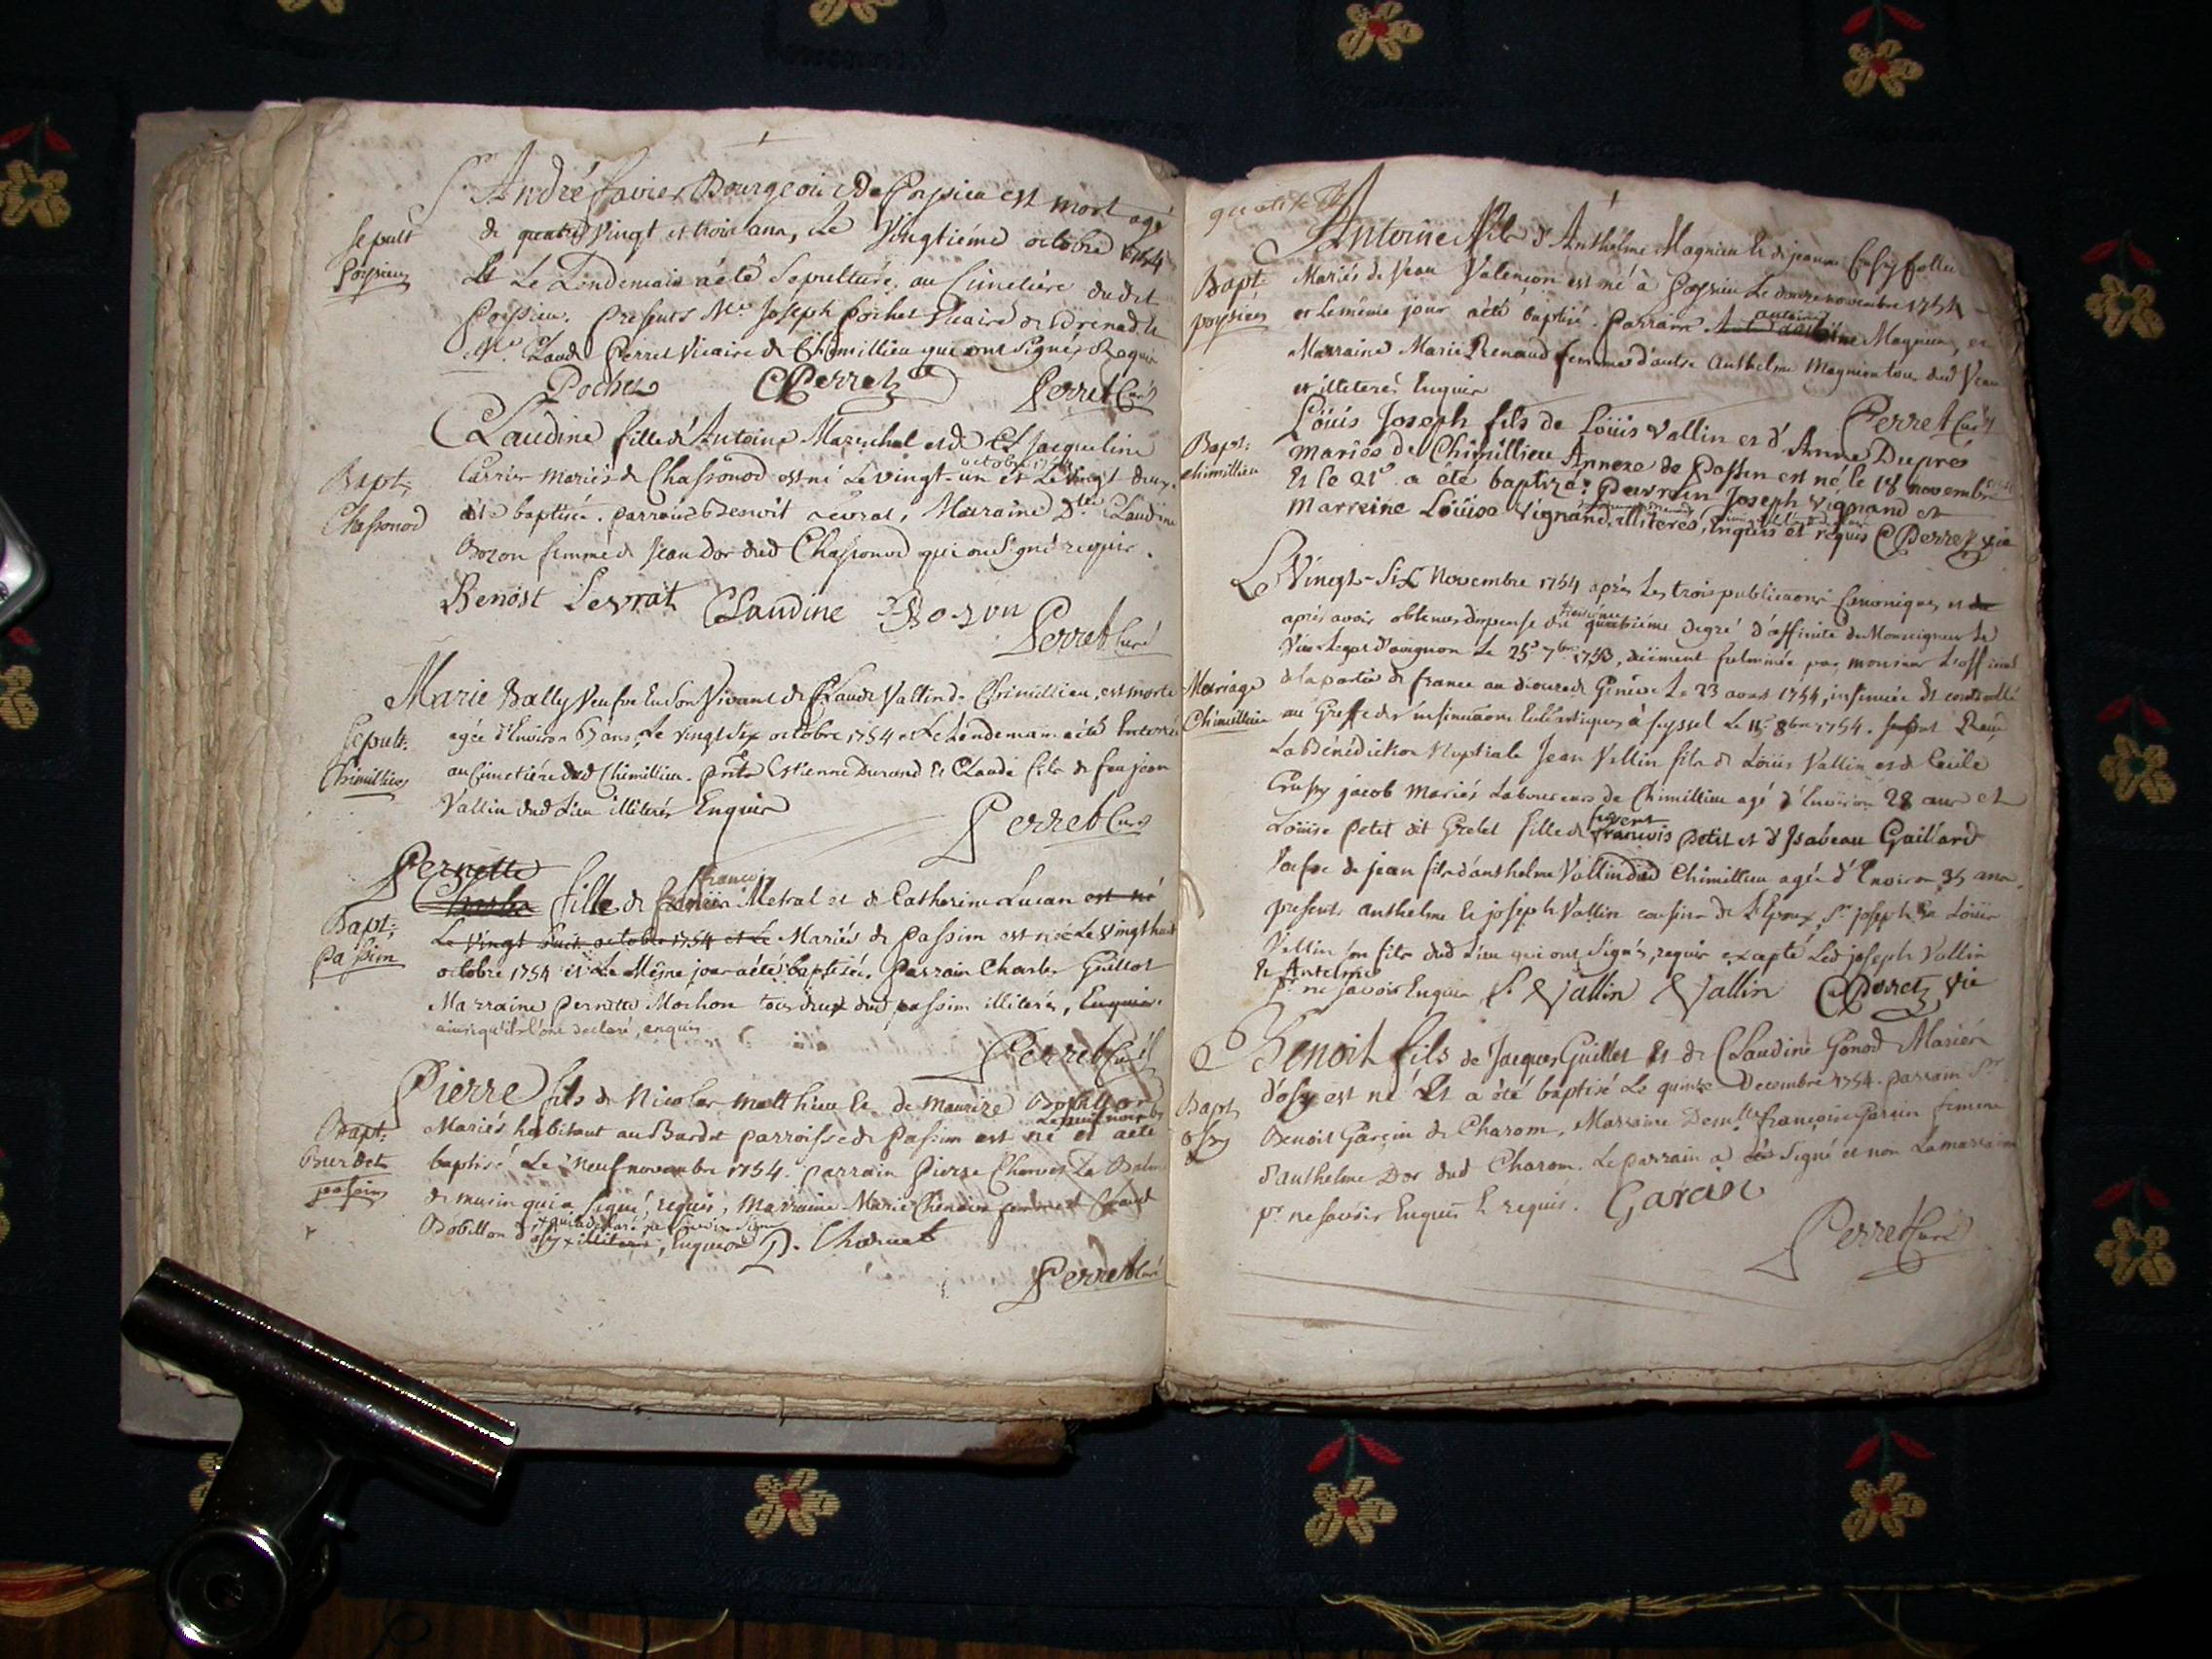 Sr André favier Bourgeois de Poysieu est mort agé
Sepult
Poysieu
de quatre Vingt et trois ans, Le Vingtiéme octobre 1754
Et Le Lendemain a été Sepulturé au Cimetiére dudit
Poysieu. presents Mre Joseph Pochet Vicaire de
Mre Claude Perret Vicaire de Chimillieu qui ont Signés Requis
Pochet CPerret Perret Curé
Claudine fille d'Antoine Marechal et de Jacqueline
Bapt:
Chassonod
Carrier mariés de Chassonod est né Le vingt-un octobre et Le Vingt deux
été baptisée. parrain Benoit Levrat, Maraine Dlle Claudine
Bozon femme de Jean Dor dud Chassonod qui ont Signé requis.
Benoist Levrat Claudine Bozon
Perret Curé
Marie Bally Veufve En Son Vivant de Claude Vallin de Chimillieu, est morte
Sepult:
Chimillieu
agée d'Environ 65 ans, Le vingt Six octobre 1754 et Le Lendemain a été Enterrée
au Cimetiére dud Chimillieu. prnts Estienne Durand Et Claude fils de feu jean
Vallin dud Lieu illiterés Enquis
Perret Curé
Pernette
Charles fille de françois Metral et de Catherine Lucan est né
Bapt;
Passim
Le vingt huit octobre 1754 et Le Mariés de Passim est née Le Vingt huit
octobre 1754 et Le Même jour a été baptisée. Parrain Charles Guillot
Marraine pernette Mochon tous deux dud passim illiterés, Enquis.
ainsi qu'ils l'ont declaré, enquis
Perret Curé
Pierre fils de Nicolas Matthieu Et de Maurize Bobillon
Bapt:
Burdet
passim
Mariés habitant au Bardet parroisse de Passim est né et a été
baptisé Le Neuf novembre 1754. parrain Pierre Charvet La Balme
de musin qui a Signé, requis, Marraine Marie Chenoin femme de Claude
Bobillon d'ossy x illiteré, Enquise P. Charvet
Perret Curé
Antoine fils d'Anthelme Magnien Et de jeanne
Bapt:
poysieu
Mariés de Veau Valençon est né à Poysieu Le douze novembre 1754
et Le même jour a été baptisé. Parrain antoine Magnien, et
Marraine Marie Renaud femme d'autre Anthelme Magnien tous dud Veau
et illiterés Enquis
Perret Curé
Loüis Joseph fils de Loüis Vallin et d'Anne Duprés
Bapt:
chimillieu
mariés de Chimillieu Annexe de Passin est né le 18 novembre
Et le 21e a été baptizé: Parrein Joseph Vignand et
Marreine Loüise Vignand, illiteres, Enquis et requis CPerret vic
Le Vingt-Six Novembre 1754 après Les trois publications Canoniques et de
aprés avoir obtenus dispense du troisiéme quatriéme degré d'affinité de Monseigneur Le
Vice Legat d'avignon Le 25e 7bre 1753, düement fulminée par monsieur L'official
Mariage
Chimillieu
de la partie de france au diocese de Genève Le 23 aoust 1754, insinuée Et controllé
au Greffe des insinuations Eclésiastiques à seyssel Le 15e 8bre 1754. Recu
La Bénédiction Nuptiale Jean Vallin fils de Loüis Vallin et de Cécile
Crussy jacob Mariés Laboureurs de Chimillieu agé d'Environ 28 ans et
Loüise petit dit Grelet fille de françois petit et d'Isabeau Gaillard
Veufve de jean fils d'anthelme Vallin dud Chimillieu agée d'Environ 35 ans.
presents anthelme Et joseph Vallin cousins de L'Epoux, Sr joseph Et Loüis
Vallin son fils dud Lieu qui ont Signés, requis excepté Led joseph Vallin
Et Antelme
pr ne Savoir Enquis S. Vallin Vallin CPerret vic
Benoit fils de Jacques Guillot Et de Claudine Gonod Mariés
Bapt
ossy
d'ossy est né Et a été baptisé Le quinze Decembre 1754. parrain Sr
Benoit Garçin de Charom, Marraine Demlle françoise Garçin femme
d'anthelme Dor dud Charom. Le parrain a Signé et non La marraine
pr ne Savoir Enquis Et requis. Garcin
Perret Curé